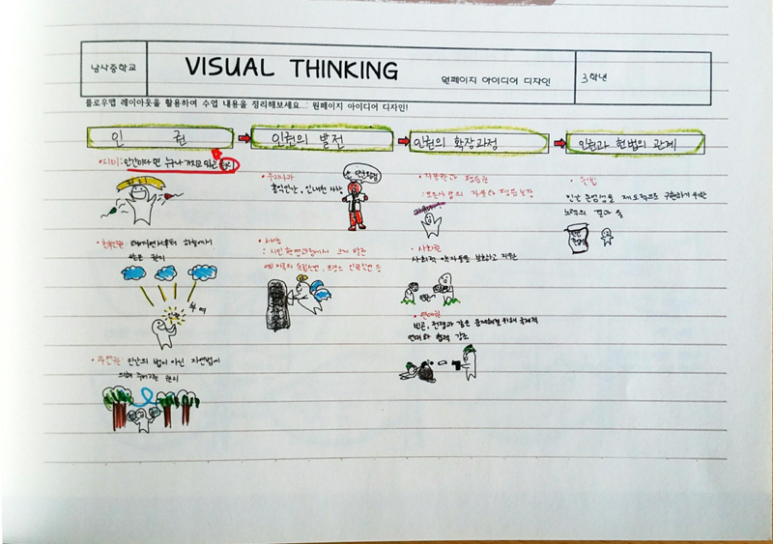 남사중학교
VISUAL THINKING
원페이지 아이디어 디자인
3학년
플로우맵 레이아웃을 활용하여 수업 내용을 정리해보세요... 원페이지 아이디어 디자인!
인 권
인권의 발전
인권의 확장과정
인권과 헌법의 관계
•의미: 인간이라면 누구나 가지고 있는 권리
•천부인권 태어나면서부터 하늘에서
받은 권리
부여
•자연권 인간의 법이 아닌 자연법에
의해 주어지는 권리
•우리나라
홍익인간, 인내천 사상
: 시민 혁명
예) 미국의 독립 혁명, 프랑스 인권선언 등
•자유권과 평등권
: 모든 사람의 자유와 평등 보장
•사회권
사회적 약자들을 보호하고 지원
•연대권
빈곤, 전쟁과 같은 문제해결 위해 국제적
연대와 협력 강조
•헌법
인간 존엄성을 제도적으로 구현하기 위한